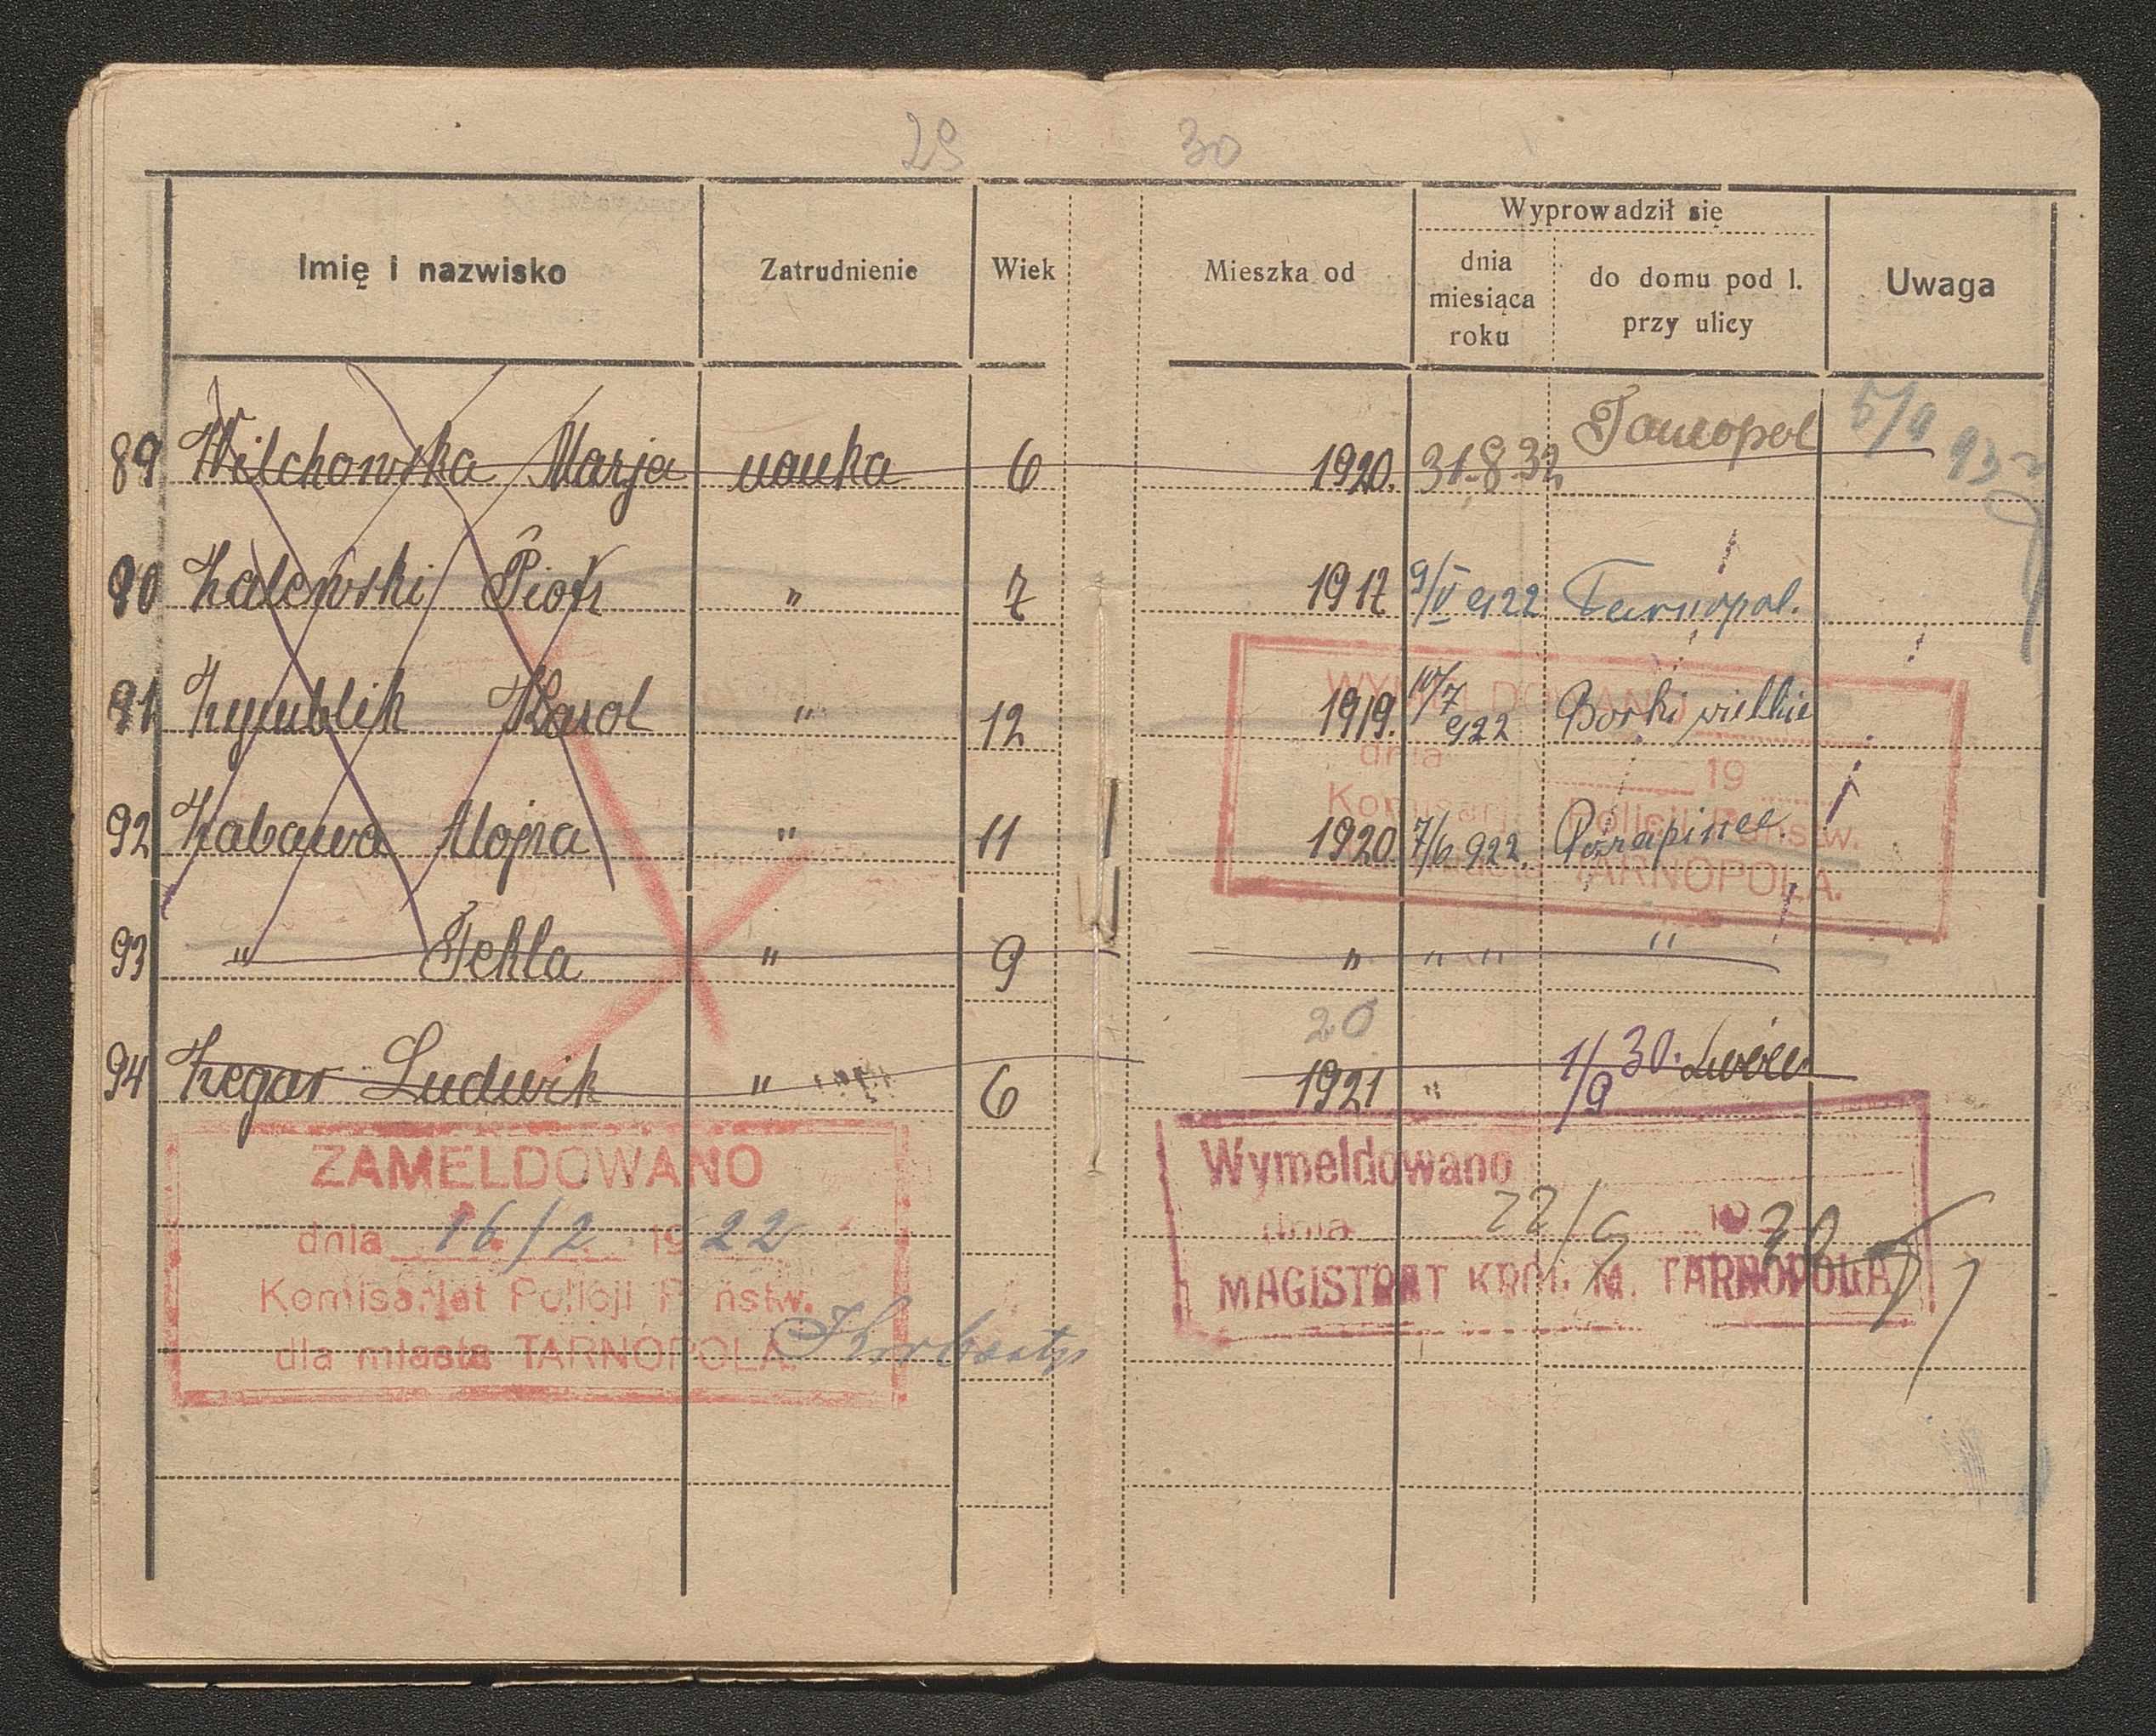 29 30
Imię i nazwisko Zatrudnienie Wiek Mieszka od Wyprowadził się Uwaga
dnia miesiąca roku do domu pod l. przy ulicy
89 Wilchowska Marja nauka 6 1920. 31.8.32 Tarnopol 5/9 932
90 Zalewski Piotr " 7 1917 9/V 922 Tarnopol.
91 Zymblik Karol " 12 1919. 10/7 922 Borki wielkie
WYMELDOWANO
dnia 19
Komisarjat Policji Państw.
dla miasta TARNOPOLA.
92 Zabawa Alojza " 11 1920. 7/6 922.
93 " Tekla " 9 " " " "
20
94 Zegar Ludwik " 6 1921 " 1/9 30. Lwów
ZAMELDOWANO
dnia 16/2 1922
Komisarjat Policji Państw.
dla miasta TARNOPOLA.
Wymeldowano
dnia 22/9 1930
MAGISTRAT KRÓL. M. TARNOPOLA